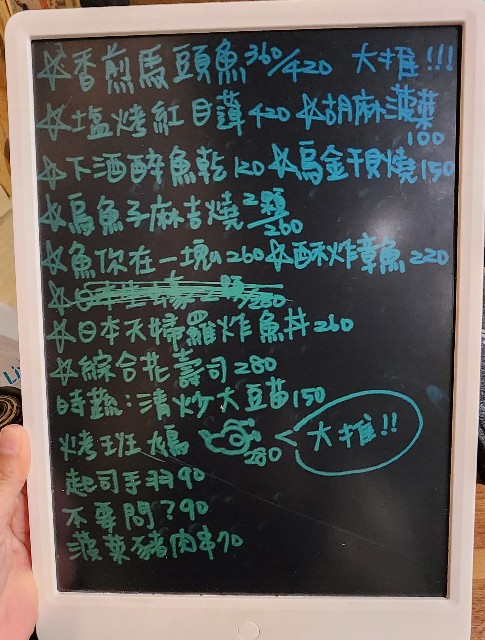 ☆香煎馬頭魚360/420 大推!!!
☆塩烤紅目蓮420 ☆胡麻菠菜100
☆下酒醉魚乾120 ☆烏金干貝燒150
☆烏魚子麻吉燒2顆/260
☆魚你在一塊260 ☆酥炸章魚220
☆日本生蠔2顆/280
☆日本天婦羅炸魚丼260
☆綜合花壽司280
時蔬:清炒大豆苗150
烤斑鳩280 大推!!
起司手羽90
不要問?90
菠菜豬肉串70